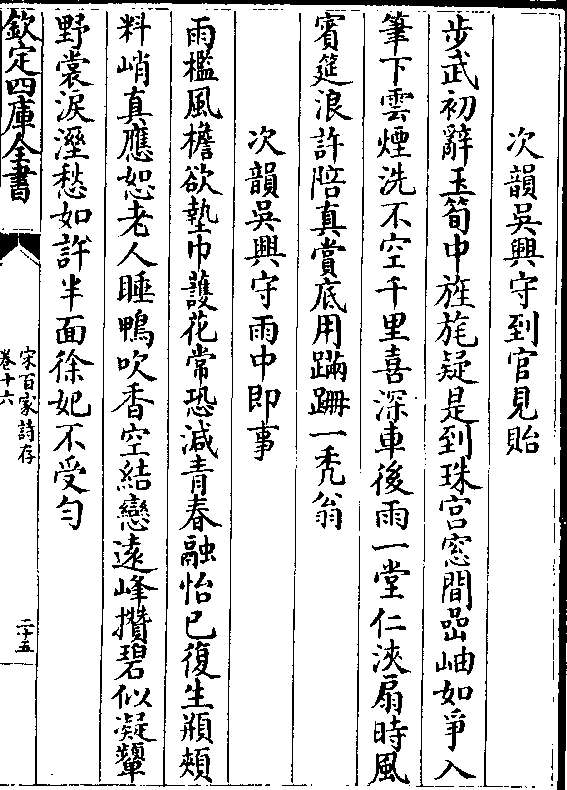 次韻吳興守到官見貽
步武初辭玉筍中旌旄疑是到珠宫窓間嵒岫如爭入
筆下雲煙洗不空千里喜深車後雨一堂仁浹扇時風
賓筵浪許陪真賞底用蹣跚一秃翁
次韻吳興守雨中即事
雨檻風檐欲墊巾護花常恐減青春融怡已復生頩頰
料峭真應恕老人睡鴨吹香空結戀遠峰攢碧似凝顰
野裳淚溼愁如許半面徐妃不受勻
欽定四庫全書
宋百家詩存
卷十六
二十五